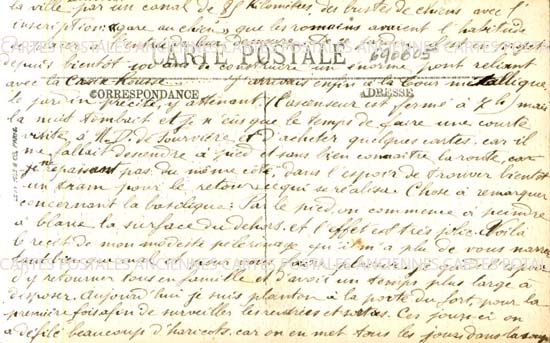 la ville par un canal de 85 kilomètres des bustes de chiens avec l'
inscription : gare au chien, que les romains avaient l'habitude
depuis bientôt de construire un pont reliant
CARTE POSTALE
690605
avec la Croix Rousse. J'arrivais enfin à la tour métallique
CORRESPONDANCE
ADRESSE
le jardin précité y attenant. L'ascenseur est fermé à 7 h mais
la nuit tombait et je n'eus que le temps de faire une courte
visite à N.D. de Fourvière et d'acheter quelques cartes. car il
me fallait descendre à pied et sans bien connaître la route, car
je ne repassant pas du même côté, dans l'espoir de trouver bientôt
un tram pour le retour ce qui se réalisa. Chose à remarquer
concernant la basilique : Par le pied, on commence à peindre
à blanc la surface du dehors, et l'effet est très joli. Voilà
le récit de mon modeste pèlerinage qu'il m'a plu de vous narrer
tant bien que mal pour vous faire plaisir
d'y retourner tous en famille et d'avoir un temps plus large à
disposer. Aujourd'hui je suis planton à la porte du fort, pour la
première fois afin de surveiller les entrées et sorties. Ces jours-ci on
a défilé beaucoup d'haricots, car on en met tous les jours dans la soupe
CARTES POSTALES ANCIENNES